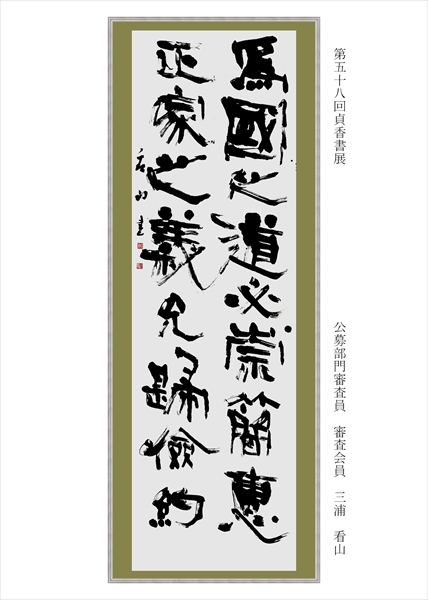 第五十八回貞香書展
公募部門審査員　審査会員　三浦　看山
爲國之道必崇簡惠
正家之義允歸儉約
看山書